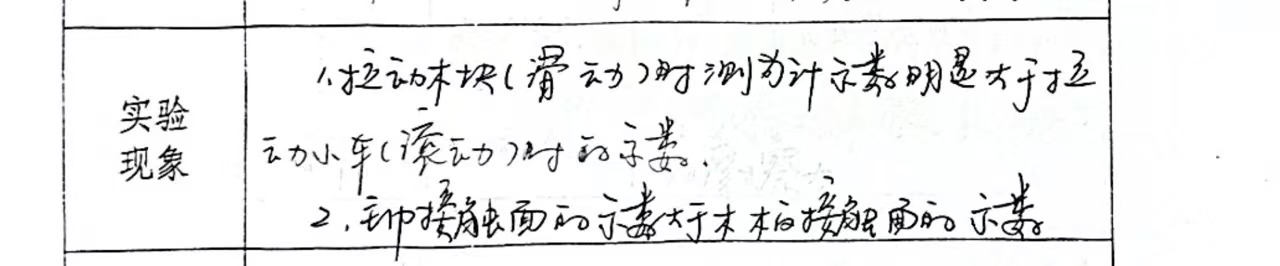 实验
现象
1.拉动木块(滑动)时测力计示数明显大于拉
动小车(滚动)时的示数.
2.毛巾接触面的示数大于木板接触面的示数